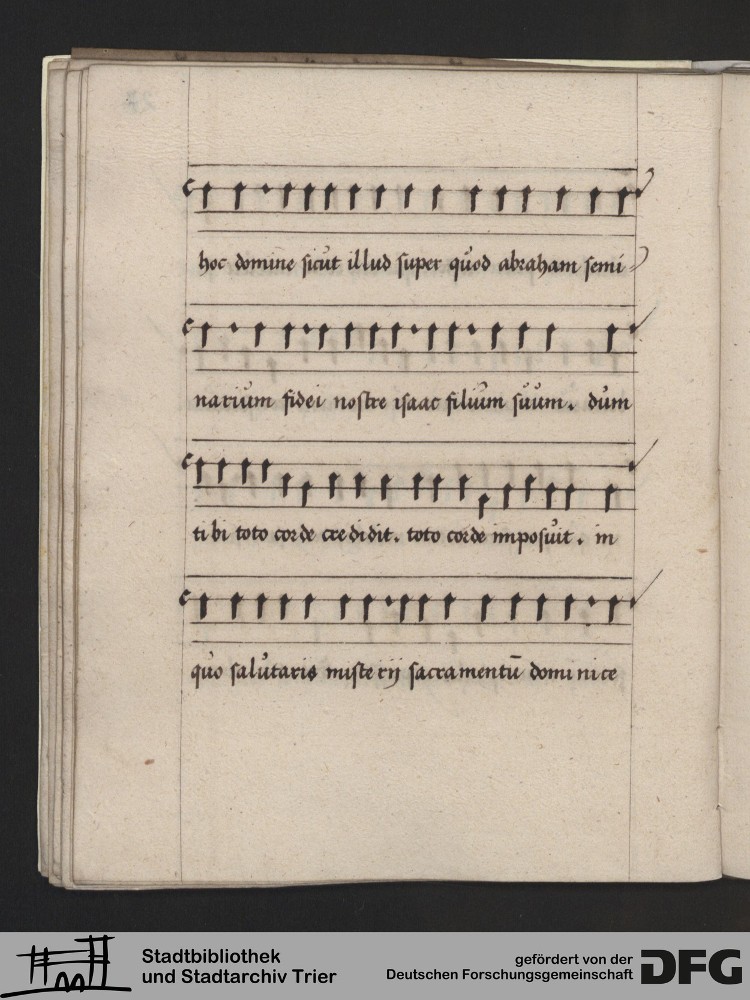 hoc domine sicut illud super quod abraham semi
narium fidei nostre isaac filium suum. dum
tibi toto corde credidit. toto corde imposuit. in
quo salutaris misterij sacramentū dominice
Stadtbibliothek
und Stadtarchiv Trier
gefördert von der
Deutschen Forschungsgemeinschaft
DFG